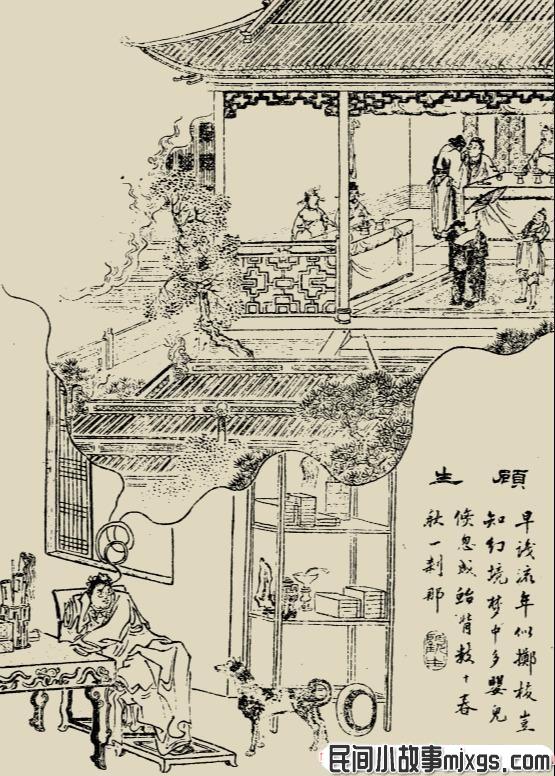 頋生
早識流年似擲梭豈
知幻境梦中多嬰兒
倏息成鮐背数十春
秋一刹那
民间小故事mjxgs.com